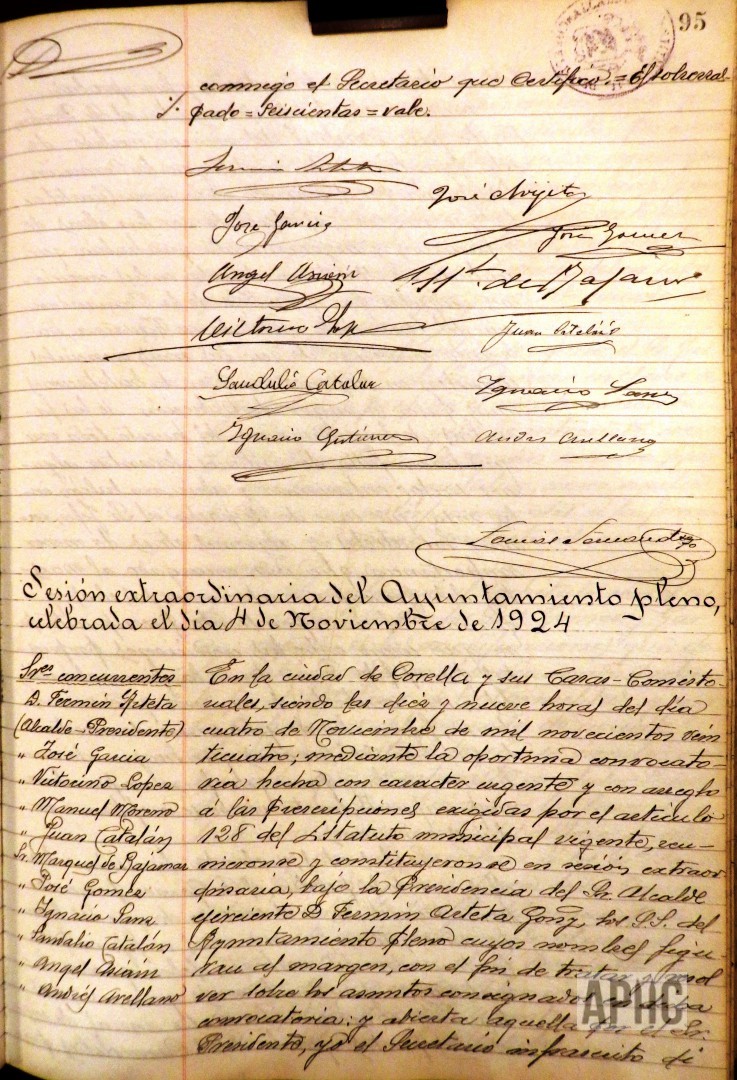 95
conmigo el Secretario que Certifico. = El sobrerras-
pado = Seiscientas = vale.
Fermín Arteta
José Argita
José García
José Gomez
Angel Asiain
M. de Bajamar
Victorino
Juan Catalán
Sandalio Catalán
Ignacio Sanz
Ignacio Gutiérrez
Andrés Arellano
Sesión extraordinaria del Ayuntamiento pleno,
celebrada el día 4 de Noviembre de 1924
Sres concurrentes
D. Fermín Arteta
(Alcalde-Presidente)
" José García
" Victorino Lopez
" Manuel Moreno
" Juan Catalán
Sr. Marques de Bajamar
" José Gomez
" Ignacio Sanz
" Sandalio Catalán
" Angel Asiain
" Andrés Arellano
En la ciudad de Corella y sus Casas-Consisto-
riales, siendo las diez y nueve horas del día
cuatro de Noviembre de mil novecientos vein
ticuatro; mediante la oportuna convocato-
ria hecha con caracter urgente y con arreglo
á las prescripciones exigidas por el artículo
128 del Estatuto municipal vigente, reu-
nieronse y constituyeronse en sesión extraor
dinaria, bajo la Presidencia del Sr. Alcalde
ejerciente D. Fermín Arteta los S.S. del
Ayuntamiento Pleno cuyos nombres figu-
ran al margen, con el fin de tratar y resol
ver sobre los asuntos consignados en dicha
convocatoria: y abierta aquella por el Sr.
Presidente, yo el Secretario infrascrito di
APHC